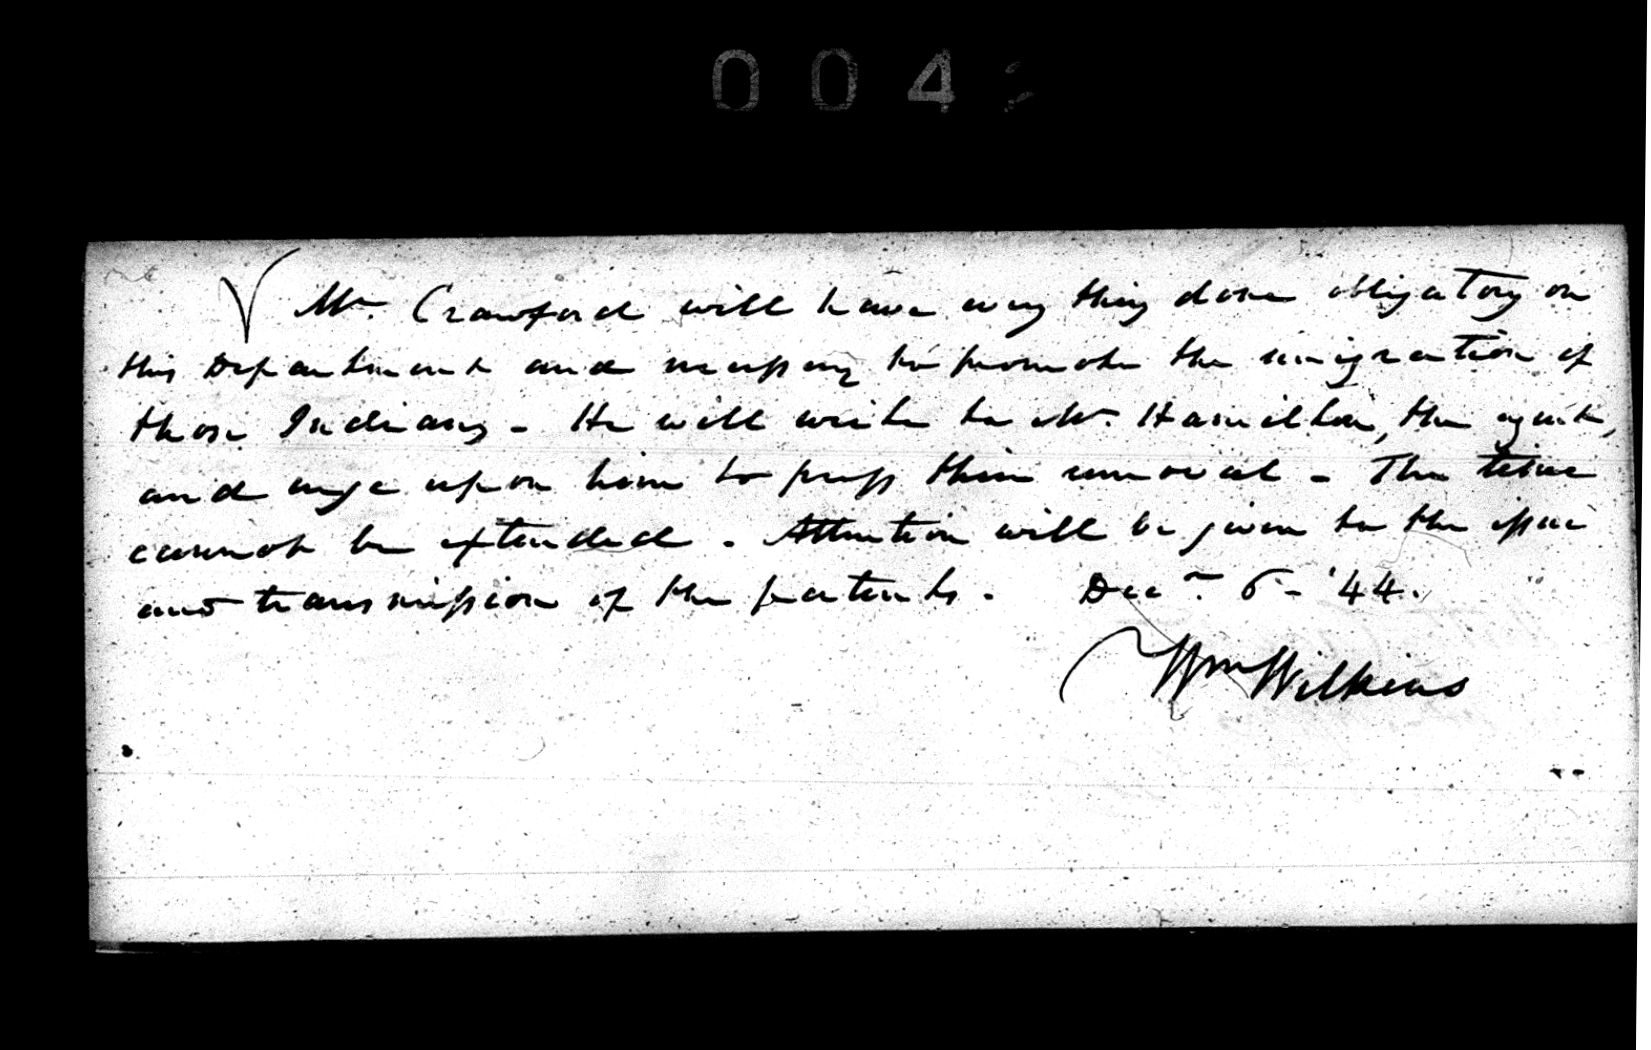 004
Mr. Crawford will have every thing done obligatory on
this Department and necessary to promote the emigration of
those Indians - He will write to Mr. Hamilton, the agent,
and urge upon him to press their removal - The time
cannot be extended. Attention will be given to the issue
and transmission of the patents. Decr. 6 - '44.
Wm Wilkins